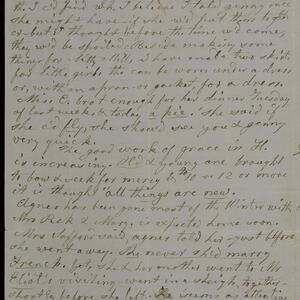 that I c'd find which I believe I told Jenny once
she might have - if she w'd put them together
or - but I thought before the time we'd come,
they w'd be spoiled. Beside making some
things for Setty Mills, I have made two skirts
for little girls that can be worn under a dress
or, with an apron or jacket, for a dress.
Miss C. brot enough for her dinner Tuesday
of last week, & today a pie. She said if
she c'd fly, she should see you & Jenny
very quick.
The good work of grace in H.
is increasing. Old & young are brought
to bow & seek for mercy & 10 or 12 or more
it is thought "all things are new.
Agnes has been gone most of the Winter with
Mrs & Mary, is expected home soon.
Mrs Safford said, Agnes told her just before
she went away. She never sh'd marry
French. Yet, she & her mother went to Mr
Eliot's visiting - went in a sleigh, together,
shortly before she left. He seems as attentive